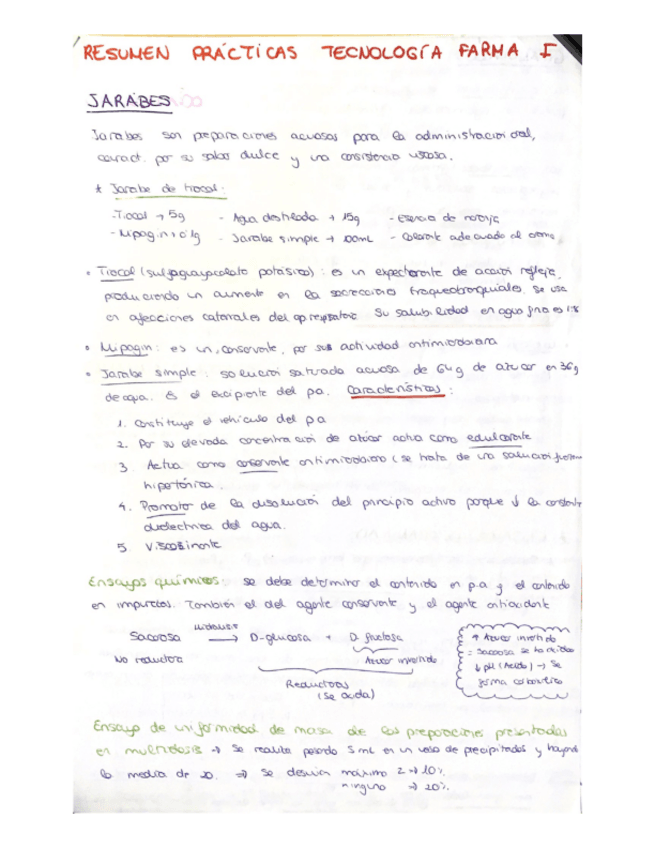 RESUMEN PRÁCTICAS TECNOLOGÍA FARMA I
JARABES
Jarabes son preparaciones acuosas para la administración oral,
caract. por su sabor dulce y una consistencia viscosa.
* Jarabe de tiocol:
- Tiocol → 5g - Agua destilada → 15g - Esencia de naranja
- Nipagin → 0'1g - Jarabe simple → 100mL - Colorante adecuado al aroma
• Tiocol (sulfoguayacolato potásico): es un expectorante de acción refleja,
produciendo un aumento en la secreción traqueobronquiales. Se usa
en afecciones catarrales del ap respiratorio. Su solubilidad en agua fría es
• Nipagin: es un conservante, por su actividad antimicrobiana
• Jarabe simple: solución saturada acuosa de 64g de azúcar en 36g
de agua. Es el excipiente del pa. Características:
1. Constituye el vehículo del pa
2. Por su elevada concentración de azúcar actúa como edulcorante
3. Actúa como conservante antimicrobiano (se trata de una solución
hipertónica.
4. Promotor de la disolución del principio activo porque ↓ la
dieléctrica del agua.
5. Viscosinante
Ensayos químicos: se debe determinar el contenido en p.a y el contenido
en impurezas. También el del agente conservante y el agente antioxidante
Sacarosa → D-glucosa + D fructosa
No reductora
Azúcar invertido
Reductoras
(se oxida)
↑ Azúcar invertido
= Sacarosa se ha oxidado
↓ pH (Ácido) → Se
forma
Ensayo de uniformidad de masa de las preparaciones presentadas
en multidosis → Se realiza pesando 5 mL en un vaso de precipitados y haciendo
la media de 20. → Se desvían máximo 2 → 10%.
ninguno → 20%.